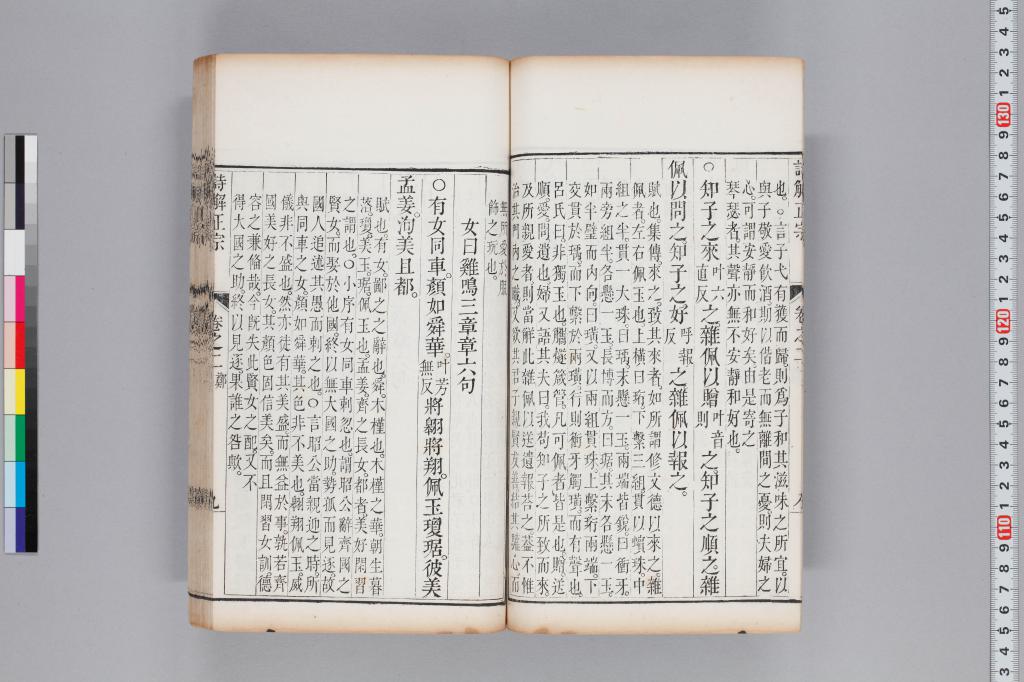 也。○言子弋有獲而歸。則爲子和其滋味之所宜。以
與子敬愛飲酒。期以偕老而無離間之憂。則夫婦之
心。可謂安靜而和好矣。由是寄之
琴瑟者。其聲亦無不安靜和好也。
○知子之來叶六直反之。雜佩以贈叶音則之。知子之順之。雜
佩以問之。知子之好呼報反之。雜佩以報之。
賦也。集傳來之。致其來者。如所謂修文德以來之。雜
佩者。左右佩玉也。上橫曰珩。下繫三組。貫以蠙珠。中
組之半。貫一大珠。曰瑀。末懸一玉。兩端皆銳。曰衝牙。
兩旁組半。各懸一玉。長博而方。曰琚。其末各懸一玉。
如半璧而内向。曰璜。又以兩組貫珠。上繫珩兩端。下
交貫於瑀。而下繫於兩璜。行則衝牙觸璜。而有聲也。
呂氏曰。非獨玉也。觿燧箴管。凡可佩者。皆是也。贈送
順愛。問遺也。婦又語其夫曰。我苟知子之所致而來。
及所親愛者。則當解此雜佩以送遺報荅之。蓋不惟
治其門内之職。又欲其君子親賢友善。結其驩心。而
無所愛於服
飾之玩也。
女曰雞鳴三章章六句
○有女同車。顏如舜華。叶芳無反將翱將翔。佩玉瓊琚。彼美
孟姜。洵美且都。
賦也。有女。鄙之之辭也。舜。木槿也。木槿之華。朝生暮
落。瓊。美玉。琚。佩玉也。孟姜。齊之長女。都者。美好閒習
之謂也。○小序有女同車。刺忽也。謂昭公辭齊國之
賢女。而娶於他國。終以無大國之助。勢孤而見逐。故
國人追述其愚而刺之也。○言昭公當親迎之時。所
與同車之女。顏如舜華。其色非不美也。翱翔佩玉。威
儀非不盛也。然亦徒有其美盛而無益於事。孰若齊
國美好之長女。其顏色固信美矣。而且閒習女訓。德
容之兼偹哉。今既失此賢女之配。又不
得大國之助。終以見逐。果誰之咎歟。
詩解正宗
卷之二
鄭
九